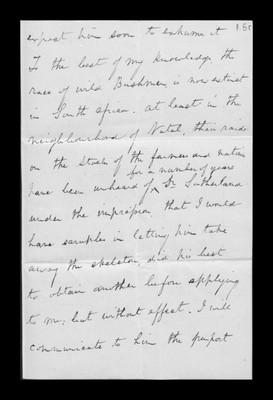 185
expect him soon to exhume it
To the best of my knowledge the
race of wild Bushmen is now extinct
in South Africa. at least in the
neighbourhood of Natal, their raids
on the stock of the farmers and natives
for a number of years
have been unheard of. Dr Sutherland
under the impression that I would
have scruples in letting him take
away the skeleton did his best
to obtain another before applying
to me; but without effect. I will
communicate to him the purport